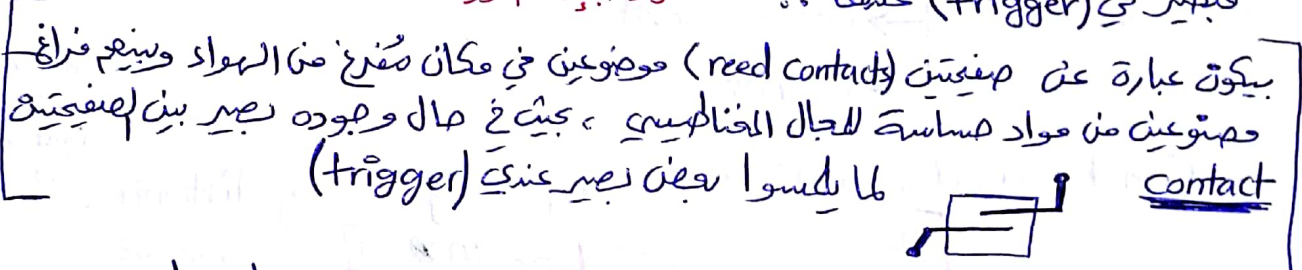 فبصير في (trigger)
بيكون عبارة عن صفيحتين (reed contacts) موضوعين في مكان مُفرغ من الهواء وبينهم فراغ
مصنوعين من مواد حساسة للمجال المغناطيسي ، بحيث في حال وجوده بصير بين الصفيحتين
contact لما يلمسوا بعض بصير عندي (trigger)